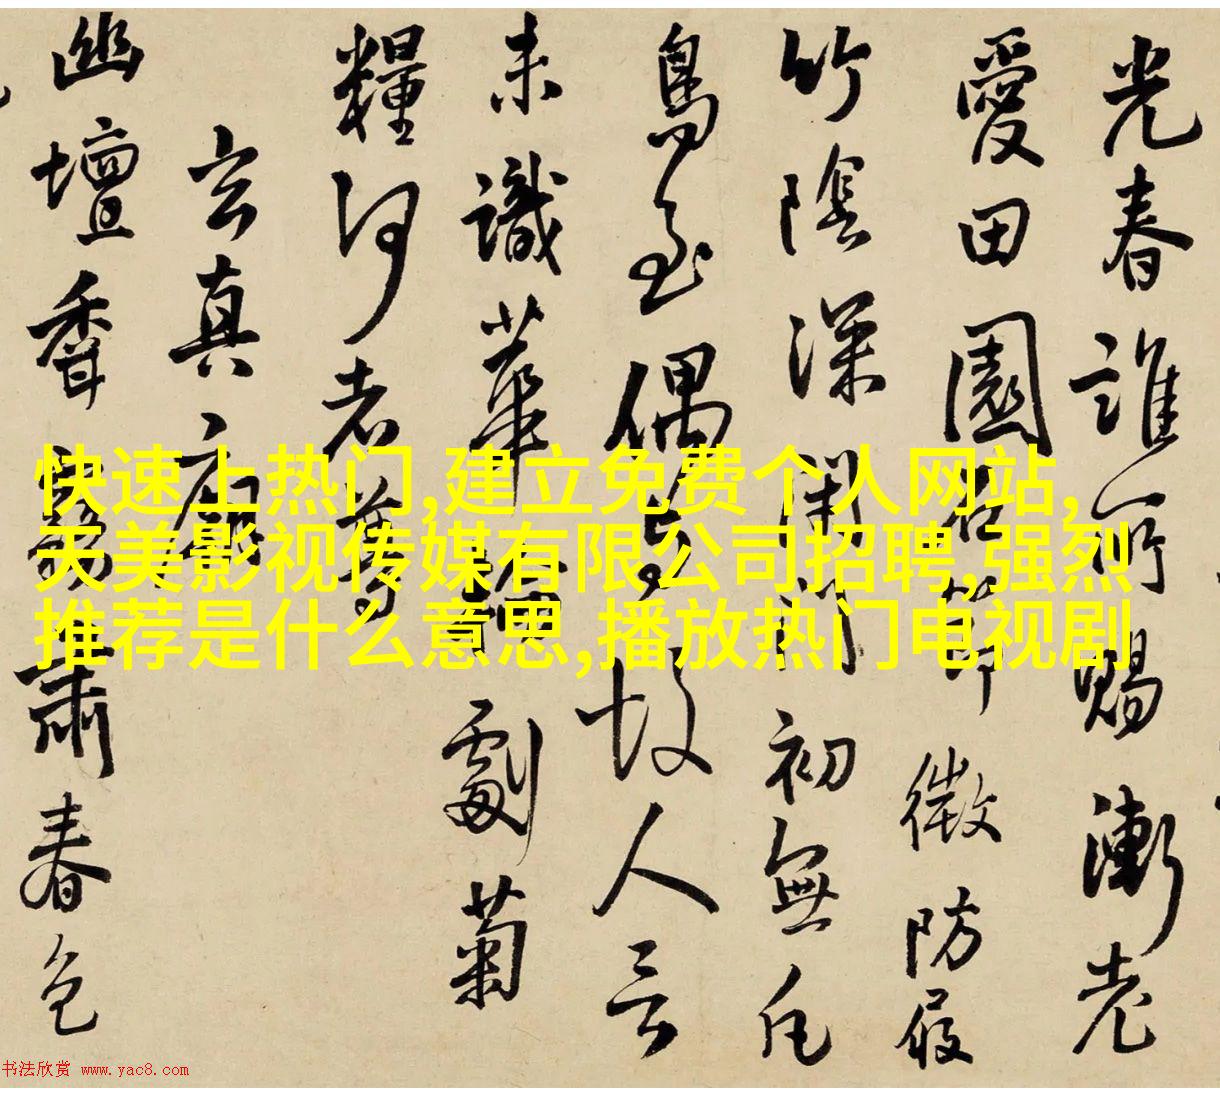 光春誰所賜漸老
愛田園 節微防屐
竹陰深閉門初無凡
鳥至偶 故人言
未識華 劇菊
糧何老
玄真廟
幽壇香靄肅春色
快速上热门,建立免费个人网站,
天美影视传媒有限公司招聘,强烈
推荐是什么意思,播放热门电视剧
书法欣赏 www.yac8.com